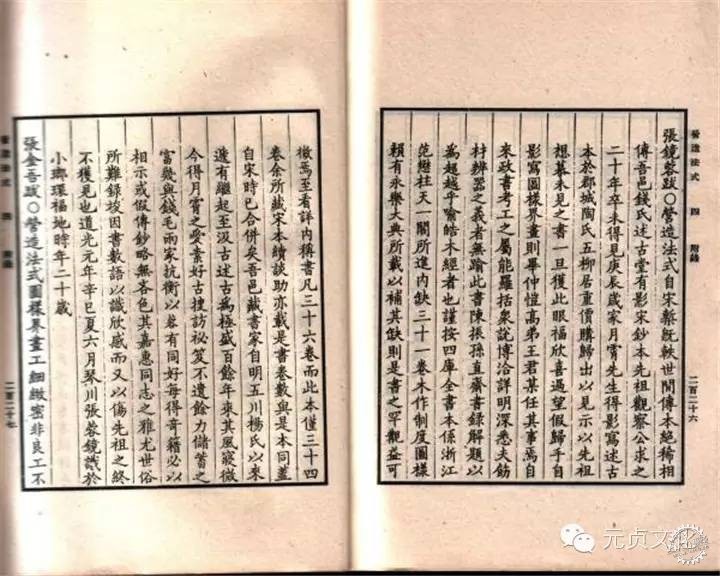 營造法式 四 附錄
二百二十六
張鏡蓉跋〇營造法式自宋槧既軼世間傳本絕稀相
傳吾邑錢氏述古堂有影宋鈔本先祖觀察公求之
二十年卒未得見庚辰歲家月霄先生得影寫述古
本於郡城陶氏五柳居重價購歸出以見示以先祖
想慕未見之書一旦獲此眼福欣喜過望假歸手自
影寫圖樣界畫則畢仲愷高弟王君某任其事焉自
來政書考工之屬能羅括衆說博洽詳明深悉夫飭
材辨器之義者無踰此書陳振孫直齋書錄解題以
為超越乎喻皓木經者也謹按四庫全書本係浙江
范懋柱天一閣所進內缺三十一卷木作制度圖樣
賴有永樂大典所載以補其缺則是書之罕觀益可
徵焉至看詳內稱書凡三十六卷而此本僅三十四
卷余所藏宋本續談助亦載是書卷數與是本同蓋
自宋時已合併矣吾邑藏書家自明五川楊氏以來
遞有繼起至汲古述古為極盛百餘年來其風寖微
今得月霄之愛素好古搜訪祕笈不遺餘力儲蓄之
富幾與錢毛兩家抗衡以蓉有同好每得奇籍必以
相示或假傳鈔略無吝色其嘉惠同志之雅尤世俗
所難錄竣因書數語以識欣感而又以傷先祖之終
不獲見也道光元年辛巳夏六月琴川張蓉鏡識於
小琅環福地時年二十歲
張金吾跋〇營造法式圖樣界畫工細緻密非良工不
營造法式 四 附錄
二百二十七
元贞文化